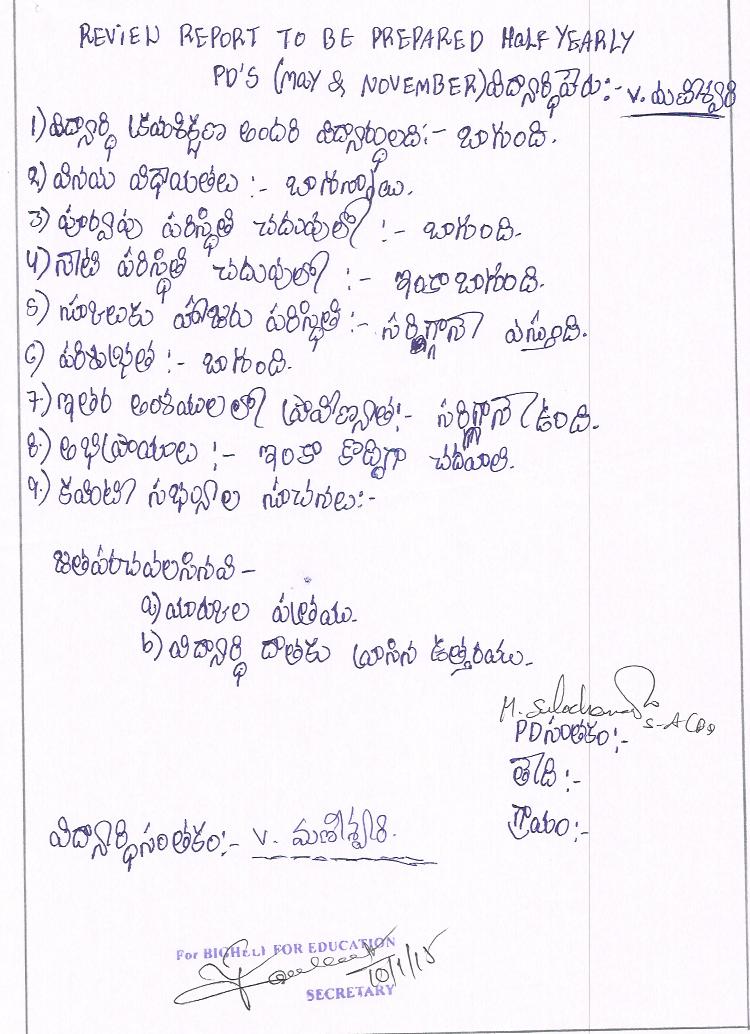 REVIEN REPORT TO BE PREPARED HALF YEARLY
PD'S (MAY & NOVEMBER) విద్యార్థి పేరు:- V. మణీశ్వరి
1) విద్యార్థి క్రమశిక్షణ అందరి విద్యార్థులది:- బాగుంది.
2) వినయ విధాయతలు :- బాగున్నాయి.
3) పూర్వపు పరిస్థితి చదువులో :- బాగుంది.
4) నాటి పరిస్థితి చదువులో :- ఇంకా బాగుంది.
5) స్కూలుకు హాజరు పరిస్థితి :- సరిగ్గానే వస్తుంది.
6) పరిశుభ్రత :- బాగుంది.
7) ఇతర అంశములలో ప్రావీణ్యత:- సరిగ్గానే ఉంది.
8) అభిప్రాయాలు :- ఇంకా కొద్దిగా చదవాలి.
9) కమిటీ సభ్యుల సూచనలు:-
జతపరచవలసినవి -
a) మార్కుల పత్రము.
b) విద్యార్థి దాతకు వ్రాసిన ఉత్తరము.
M. Sulochana
PD సంతకం:-
తేది :-
గ్రామం:-
విద్యార్థి సంతకం:- V. మణీశ్వరి.
For BIGHELI FOR EDUCATION
10/1/15
SECRETARY